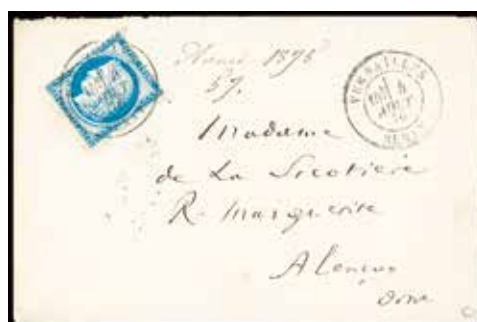 Année 1876
57.
VERSAILLES
4
AOUT
76
Madame
de La Sicotière
R. Marguerite
Alençon
Orne